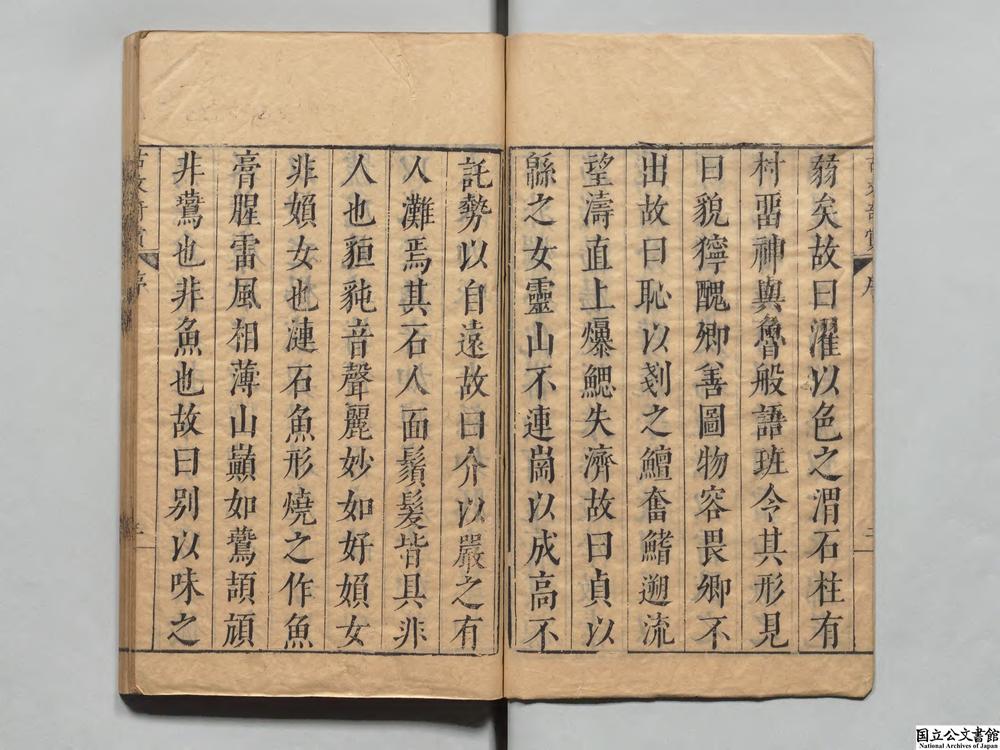 蒻矣故曰濯以色之渭石柱有
村畱神與魯般語班令其形見
曰貌獰醜卿善圖物容畏卿不
出故曰恥以剗之鱣奮鰭遡流
望濤直上爆鰓失濟故曰貞以
緜之女靈山不連崗以成高不
託勢以自遠故曰介以嚴之有
人灘焉其石人面鬚髮皆具非
人也豭豘音聲麗妙如好媍女
非媍女也漣石魚形燒之作魚
膏腥雷風相薄山巔如鷰頡頏
非鷰也非魚也故曰别以味之
古文奇賞
序
国立公文書館
National Archives of Japan